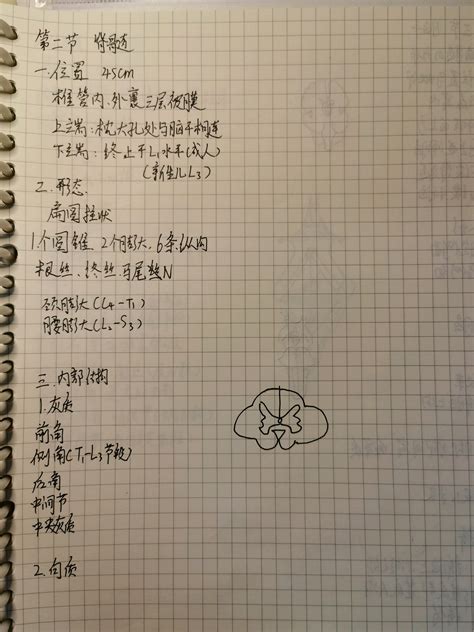 第二节 脊髓
一.位置 45cm
椎管内,外裹三层被膜
上端:枕大孔处与脑干相连
下端:终止于L₁水平(成人)
(新生儿L₃)
二.形态.
扁圆柱状
1个圆锥、2个膨大、6条纵沟
根丝、终丝、马尾N
颈膨大(C₄-T₁)
腰膨大(L₂-S₃)
三.内部结构
1.灰质
前角
侧角(T₁-L₃节段)
后角
中间带
中央灰质
2.白质